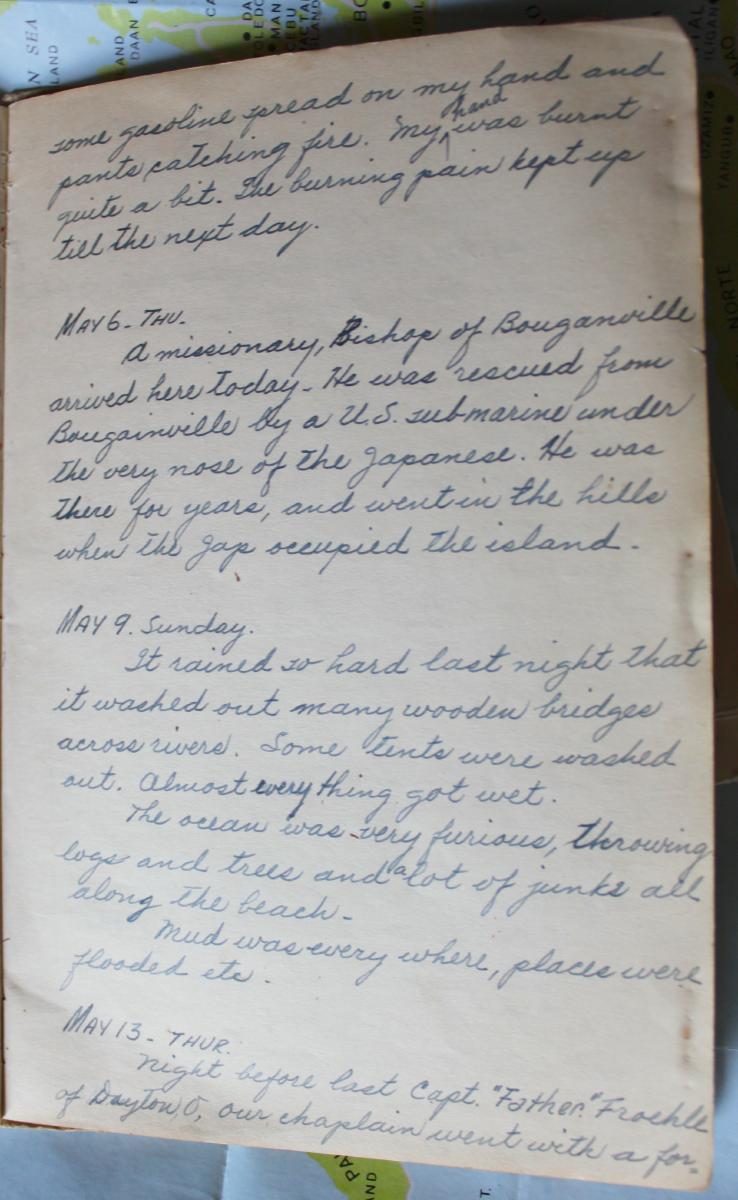 N SEA
LAND
LAND
DAAN
CA
DA
OLEDO
MAN
CEBU
BO
some gasoline spread on my hand and
pants catching fire. My hand was burnt
quite a bit. The burning pain kept up
till the next day.
MAY 6 - THU.
A missionary, Bishop of Bouganville
arrived here today. He was rescued from
Bougainville by a U.S. submarine under
the very nose of the Japanese. He was
there for years, and went in the hills
when the Jap occupied the island.
MAY 9. Sunday.
It rained so hard last night that
it washed out many wooden bridges
across rivers. Some tents were washed
out. Almost every thing got wet.
The ocean was very furious, throwing
logs and trees and a lot of junks all
along the beach.
Mud was every where, places were
flooded etc.
MAY 13 - THUR.
Night before last Capt. "Father" Froehle
of Dayton, O, our chaplain went with a for-
ILIGAN
OZAMIZ
TANGUB
NORTE
PA
AND
T.